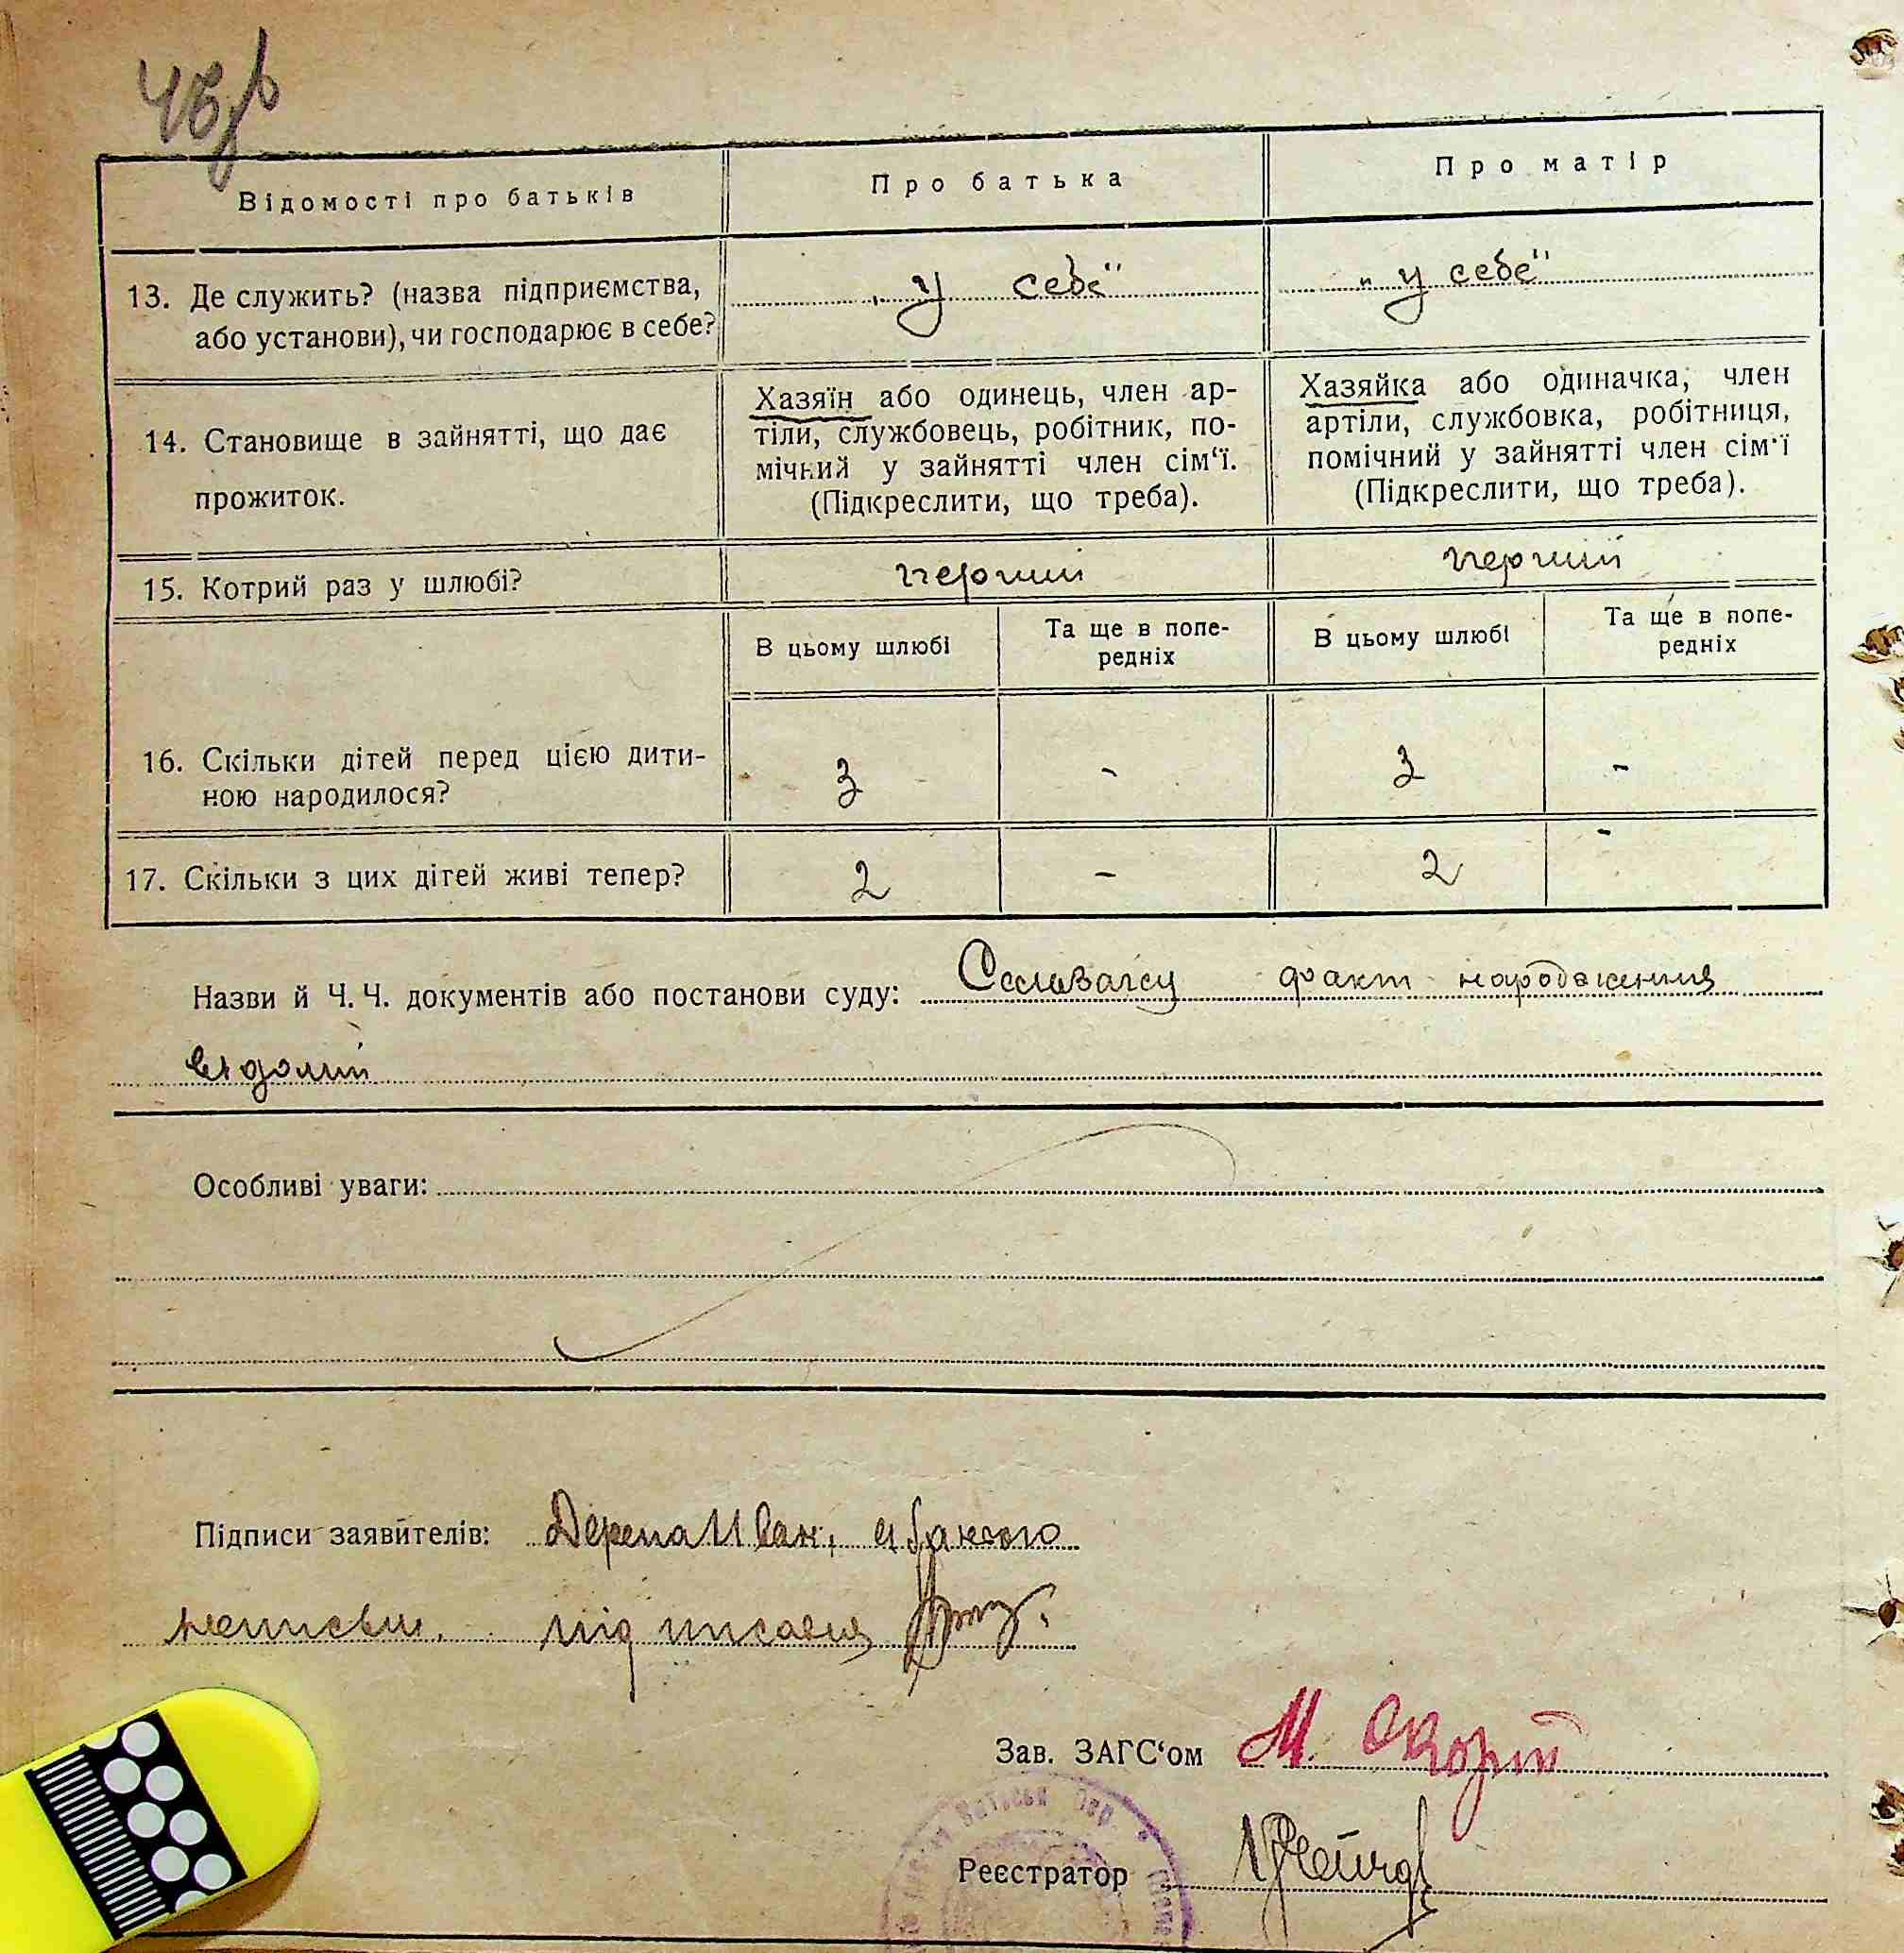 Відомості про батьків
Про батька
Про матір
13. Де служить? (назва підприємства, або установи), чи господарює в себе?
„у себе"
„у себе"
14. Становище в зайнятті, що дає прожиток.
Хазяїн або одинець, член ар-
тіли, службовець, робітник, по-
мічний у зайнятті член сім‘ї.
(Підкреслити, що треба).
Хазяйка або одиначка, член
артіли, службовка, робітниця,
помічний у зайнятті член сім‘ї
(Підкреслити, що треба).
15. Котрий раз у шлюбі?
перший
перший
В цьому шлюбі
Та ще в попе-
редніх
В цьому шлюбі
Та ще в попе-
редніх
16. Скільки дітей перед цією дити-
ною народилося?
3
-
3
-
17. Скільки з цих дітей живі тепер?
2
-
2
-
Назви й Ч. Ч. документів або постанови суду: факт народження
відомий
Особливі уваги:
Підписи заявителів: Дерепа Иван,
підписався
Зав. ЗАГС‘ом М.
Реєстратор